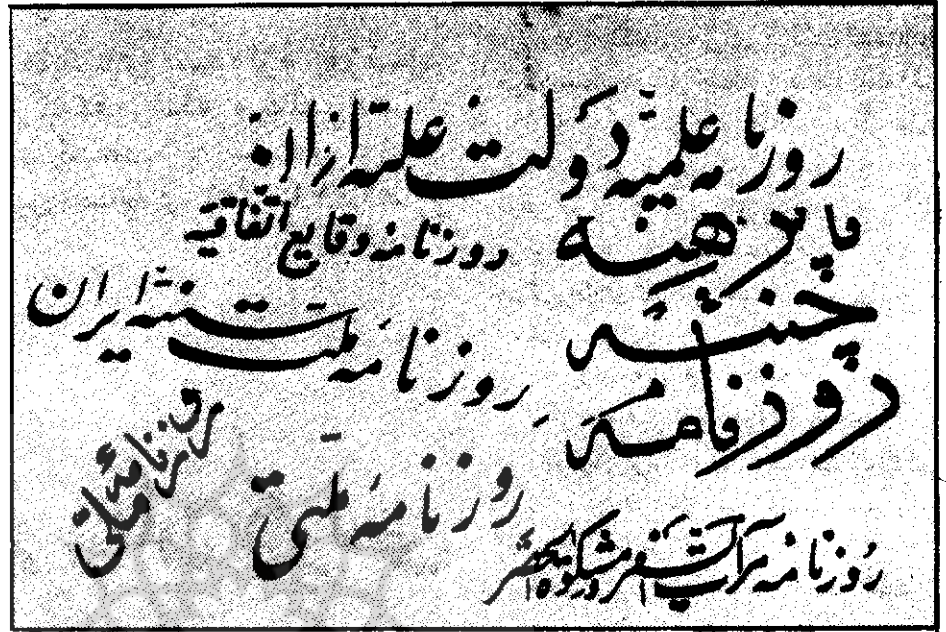 روزنامه علمیه دولت علیه ایران
روزنامه وقایع اتفاقیه
روزنامه ملت سنیه ایران
روزنامه
روزنامه ملتی
روزنامه ملتی
روزنامه مرآت السفر و مشکوة الحضر